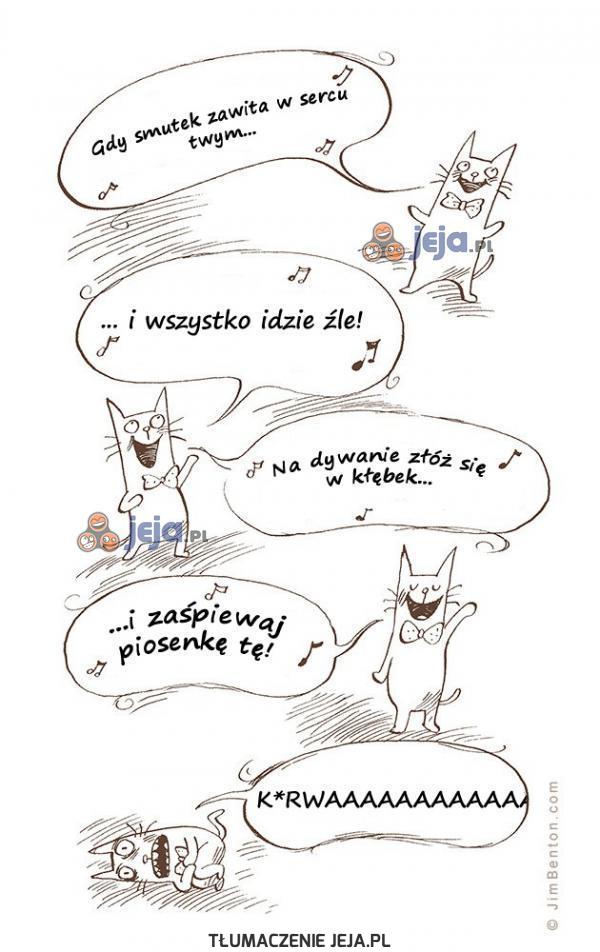 Gdy smutek zawita w sercu
twym...
jeja.pl
... i wszystko idzie źle!
Na dywanie złóż się
w kłębek...
jeja.pl
...i zaśpiewaj
piosenkę tę!
K*RWAAAAAAAAAAAA
© JimBenton.com
TŁUMACZENIE JEJA.PL